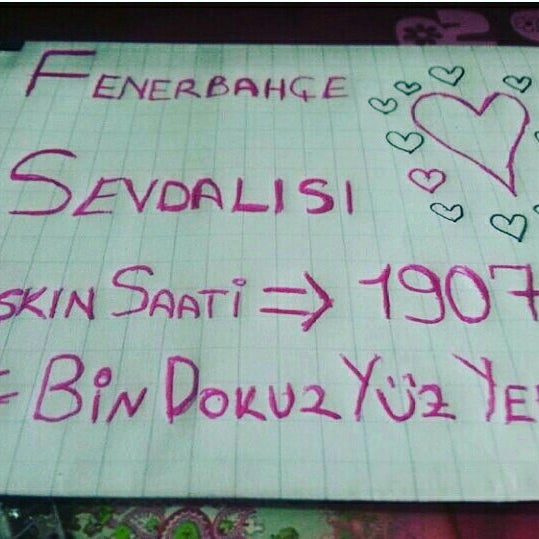 FENERBAHÇE
SEVDALISI
SAATİ => 1907
= BİN DOKUZ YÜZ